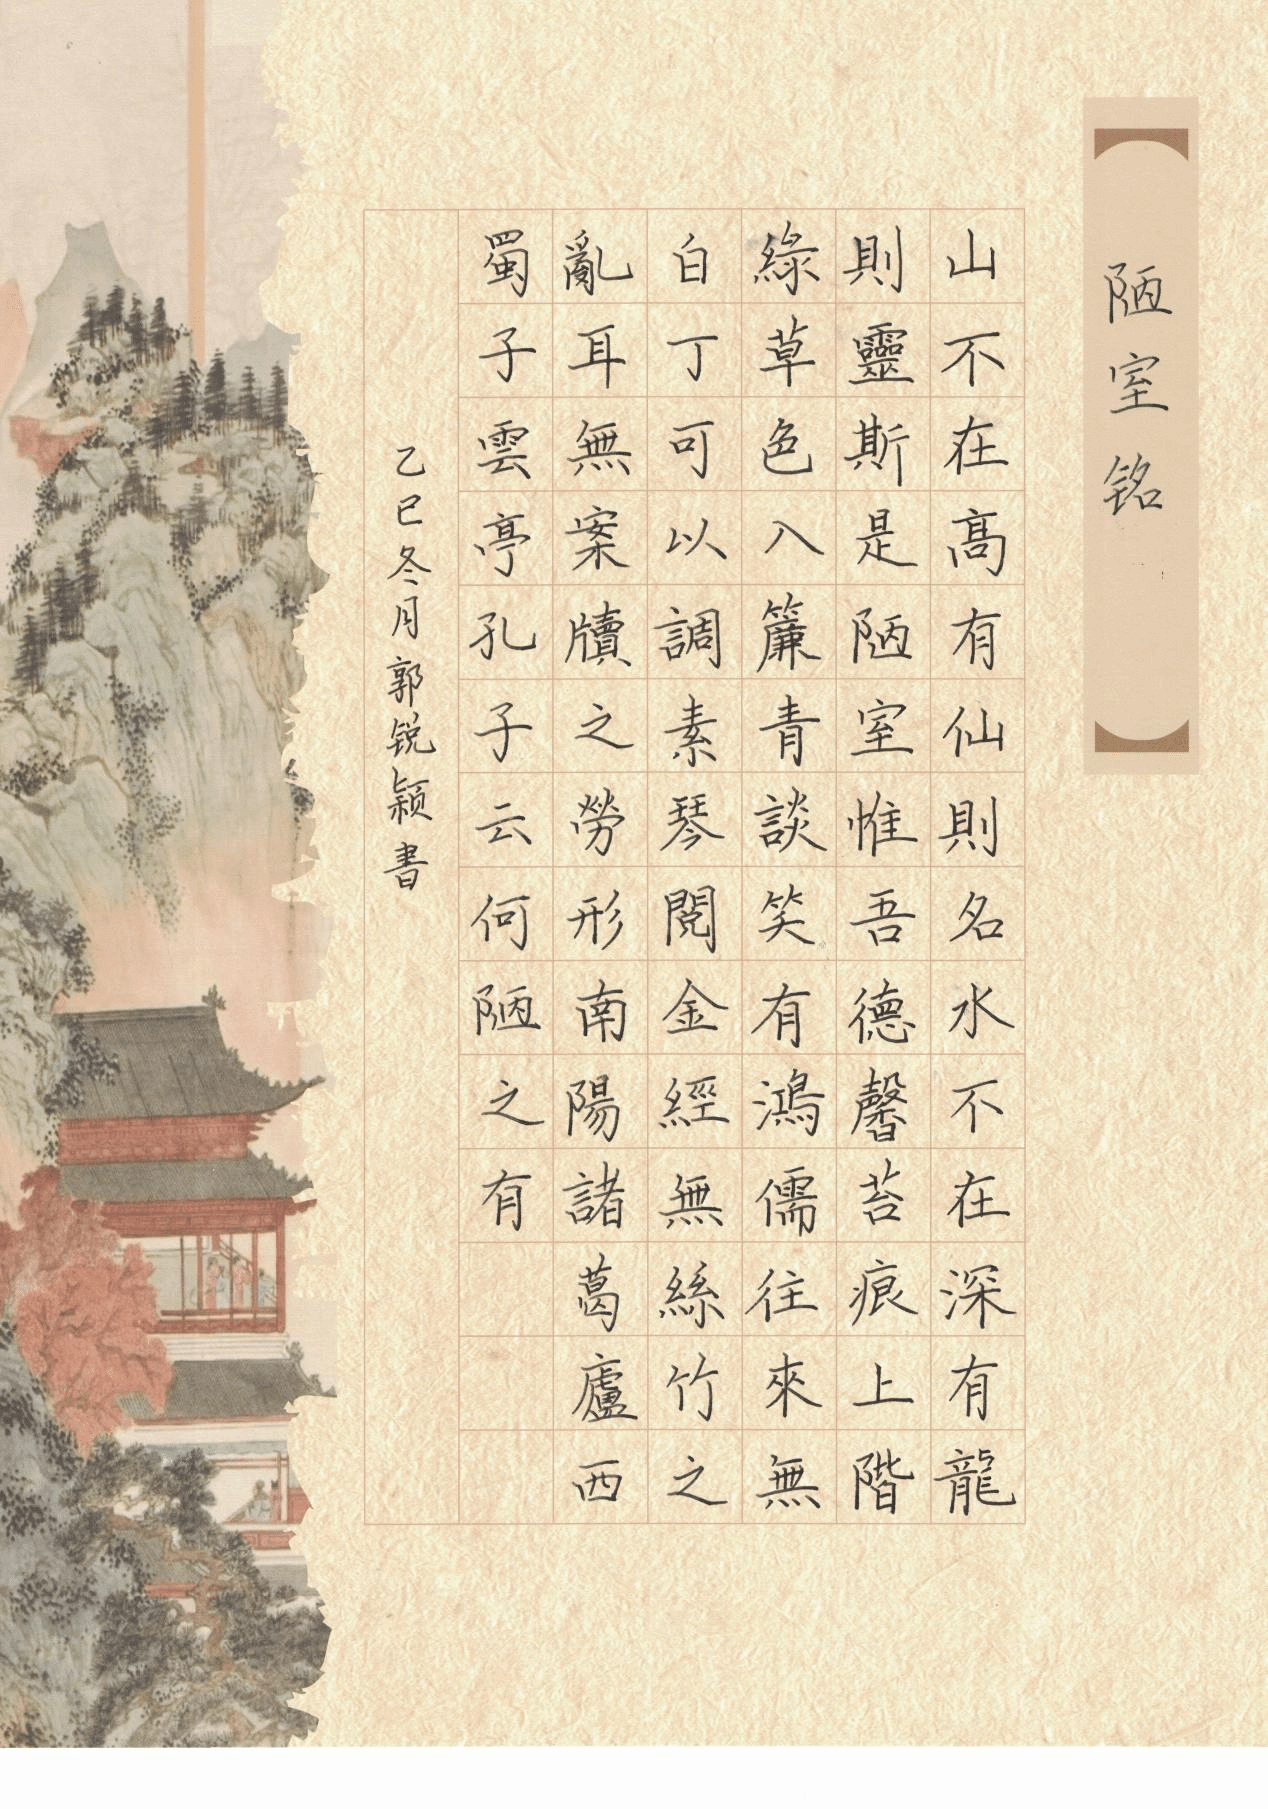 陋室铭
山不在高有仙則名水不在深有龍
則靈斯是陋室惟吾德馨苔痕上階
綠草色入簾青談笑有鴻儒往來無
白丁可以調素琴閱金經無絲竹之
亂耳無案牘之勞形南陽諸葛廬西
蜀子雲亭孔子云何陋之有
乙巳冬月郭锐颖書